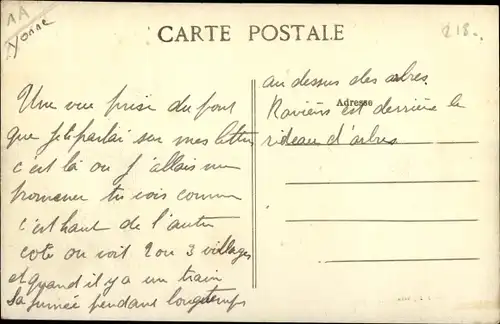 AA
Yonne
218.-
CARTE POSTALE
Une vue prise du pont
que je te parlai sur mes lettres
c'est là ou j'allais me
promener tu vois comme
c'est haut de l'autre
coté on voit 2 ou 3 villages
et quand il y a un train
la fumée pendant longtemps
au dessus des arbres.
Adresse
Raviers est derrière le
rideau d'arbres